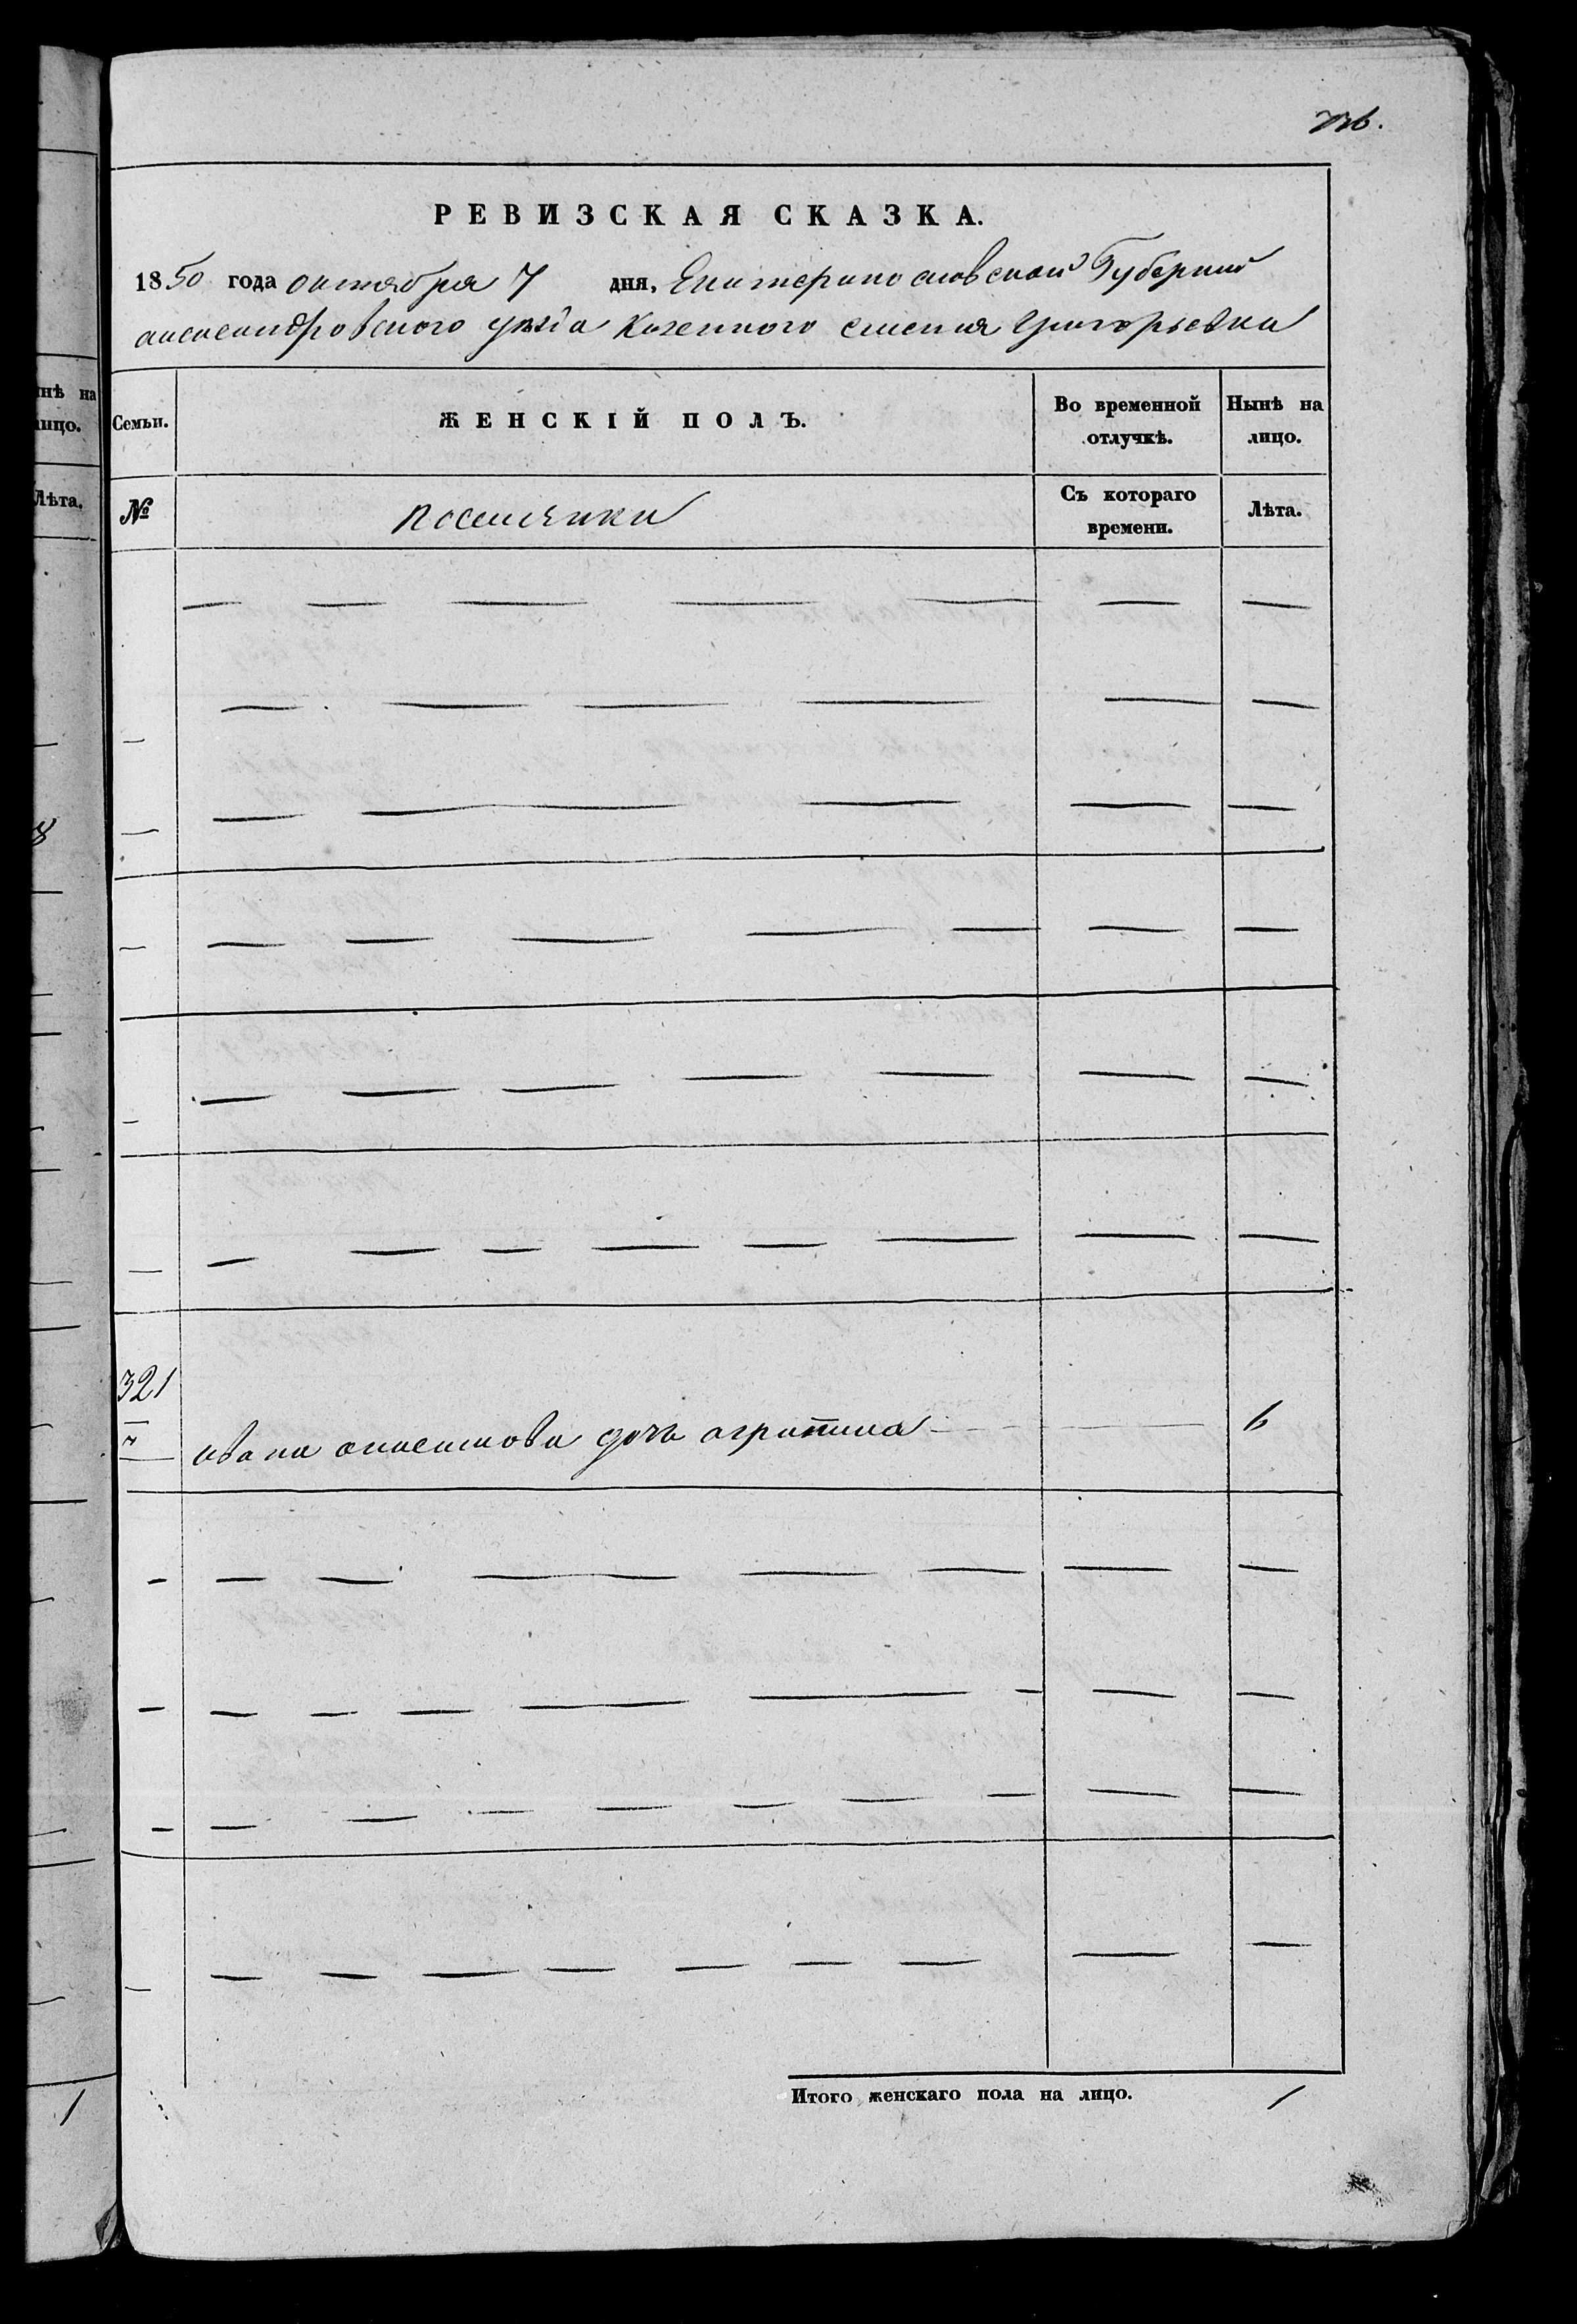 736.
РЕВИЗСКАЯ СКАЗКА.
1850 года октября 7 дня, Екатеринославской Губернии
александровского уезда Казенного селения Григорьевки
Семьи. ЖЕНСКІЙ ПОЛЪ. Во временной отлучкѣ. Нынѣ на лицо.
№ Съ котораго времени. Лѣта.
321
ивана дочь агрипина 6
Итого женскаго пола на лицо. 1
нѣ на
лицо.
Лѣта.
8
1